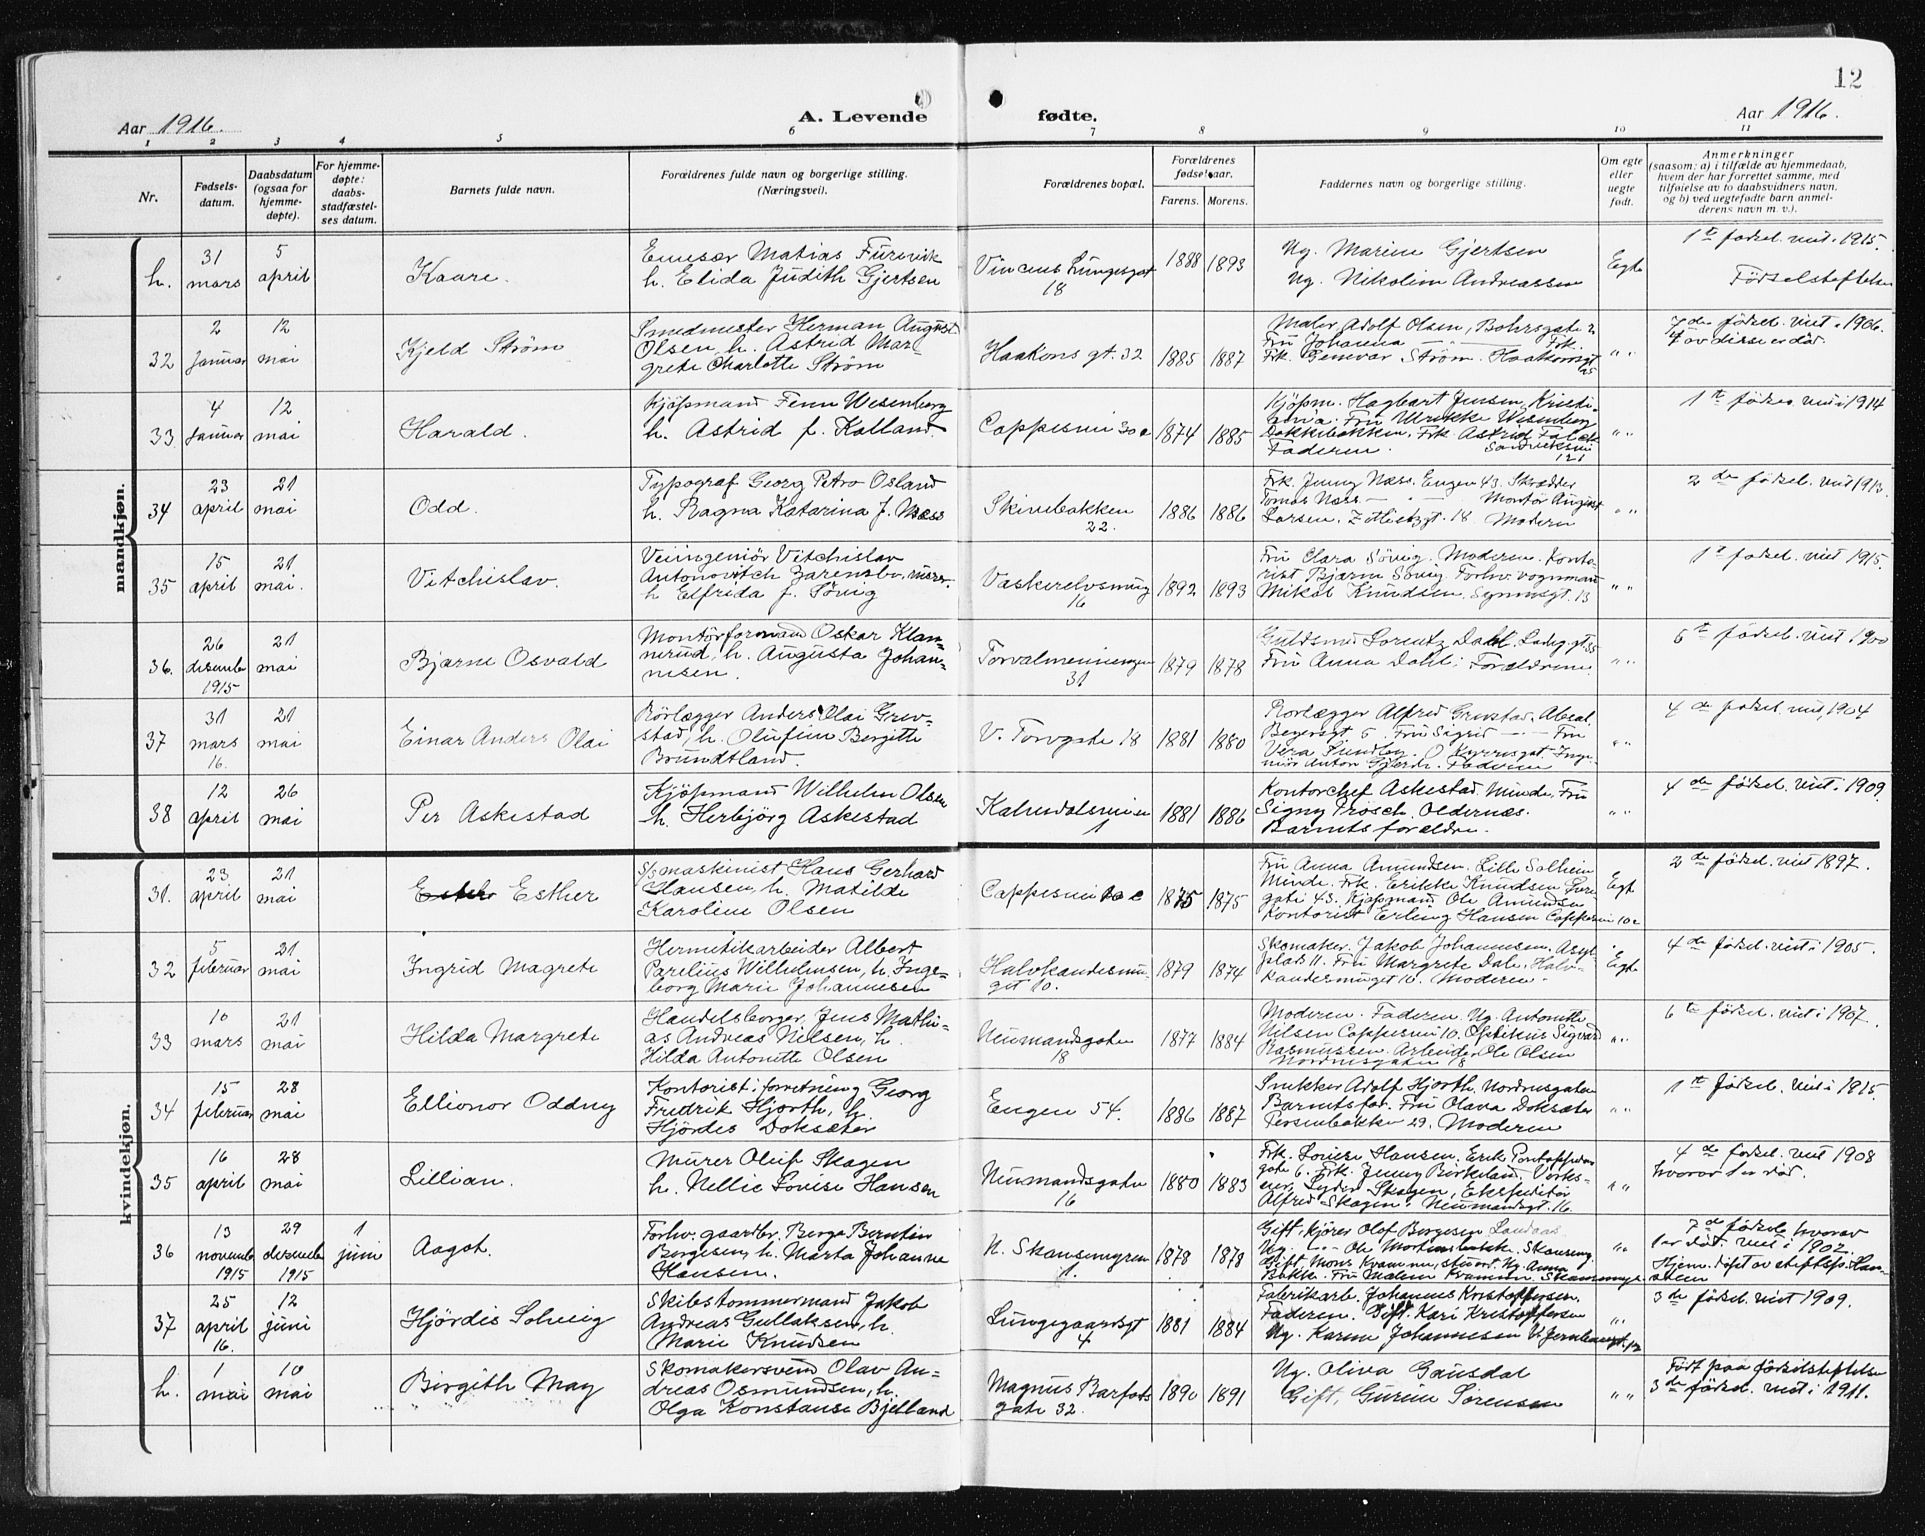 12
Aar 1916.
A. Levende
fødte.
Aar 1916.
1 2 3 4 5 6 7 8 9 10 11
Nr.
Fødsels-
datum.
Daabsdatum
(ogsaa for
hjemme-
døpte).
For hjemme-
døpte:
daabs-
stadfæstel-
ses datum.
Barnets fulde navn.
Forældrenes fulde navn og borgerlige stilling.
(Næringsvei).
Forældrenes bopæl.
Forældrenes
fødselsaar.
Farens. Morens.
Faddernes navn og borgerlige stilling.
Om egte
eller
uegte
født.
Anmerkninger
(saasom: a) i tilfælde av hjemmedaab,
hvem der har forrettet samme, med
tilføielse av to daabsvidners navn.
og b) ved uegtefødte barn anmel-
derens navn m. v.).
mandkjøn.
h.
31
mars
5
april
Kaare.
Matias Furevik
h. Elida Judith Gjertsen
18
1888 1893
Ug. Marine Gjertsen
Ug. Nikoline Andreassen
Egte
1te fødsel. viet. 1915.
Fødselstiftelsen
32
2
januar
12
mai
Kjeld Strøm
Smedmester Herman August
Olsen, h. Astrid Mar-
grete Charlotte Strøm
Haakons gt. 32
1885 1887
Maler Adolf Olsen, Bohrsgate 2
Fru Johanna — Frk.
Frk. Strøm. Haakonsgt
25
" "
7de fødsel. viet. 1906.
4 av disse er død.
33
4
januar
12
mai
Harald.
Kjøpmand Wesenberg
h. Astrid f. Kalland
Cappesvei 30a
1874 1885
Kjøpm. Hagbart Jensen, Kristi-
ania. Fru Ulrikke Wesenberg
Dokkebakken. Frk. Astrid Falck
Faderen. Sandviksvei
121
" "
1te fødsel. viet i 1914
34
23
april
21
mai
Odd.
Typograf Georg Petro Osland
h. Ragna Katarina f. Næss
Skivebakken
22.
1886 1886
Frk. Jenny Næss. Engen 43. Skrædder
Tomas Næss — " — Montør August
Larsen. 18 Moderen
" "
2de fødsel. viet 1913.
35
15
april
21
mai.
Vitchislav.
Veiingeniør Vitchislav
h Elfrida f. Søvig
Vaskerelvsmug
16
1892 1893
Fru Clara Søvig. Moderen. Konto-
rist Bjarne Søvig. Forhv. vognmand
Mikal Knudsen. 13
" "
1te fødsel. viet 1915.
36.
26
desember
1915
21
mai
Bjarne Osvald
Montørformand Oskar Klan-
nerud, h. Augusta Johan-
nesen.
Torvalmenningen
31
1879 1878
Guldsmed Lorentz Dahl. Ladeg. gt. 35
Fru Anna Dahl. Forældrene.
" "
6te fødsel. viet 1900
37
31
mars
16.
21
mai
Einar Anders Olai
Rørlægger Anders Olai Grev-
stad, h. Olufine Bergitte
Brundtland.
V. Torvgate 18
1881 1880
Rørlægger Alfred Grevstad. Absal.
Beyersgt 5 Fru Sigrid — — Fru
Vera Sundby. O. Kyrresgat. Inge-
niør Anton Gjerde. Faderen
" "
4de fødsel. viet 1904
38
12
april
26
mai
Per Askestad
Kjøpmand Wilhelm Olsen
h. Herbjörg Askestad
Kalvedalsveien
1
1881 1886
Kontorchef Askestad. Minde. Fru
Signy Prosch. Oldernæs.
Barnets forældre.
" "
4de fødsel. viet i 1909.
kvindekjøn.
31.
23
april
21
mai
Esther
S/S maskinist Hans Gerhard
Hansen, h. Matilde
Karoline Olsen
Cappesvei 10c
1875 1875
Fru Anna Amundsen. Lille Solheim
Minde. Frk. Erikke Knudsen Øvre
gate 43. Kjøpmand Ole Amundsen
Kontorist Erling Hansen Cappesvei 10c
Egt.
2de fødsel. viet 1897.
32
5
februar
21
mai
Ingrid Magrete
Hermetikarbeider Albert
Parelius Wilhelmsen, h. Inge-
borg Marie Johannesen
Halvkandesmu-
get 10.
1879 1874
Skomaker. Jakob Johannesen. Asyl-
plads 11. Fru Margrete Dale. Halv-
kandesmuget 10. Moderen.
Egte
4de fødsel. viet i 1905.
33
10
mars
21
mai
Hilda Margrete
Handelsborger Jens Mathi-
as Andreas Nilsen, h.
Hilda Antonette Olsen
Neumandsgaten
18
1877 1884
Moderen. Faderen. Ug. Antonette
Nilsen Cappesvei 10. Optikus Sigvard
Rasmussen. Arbeider Ole Olsen
Nordnesgaten 18
" "
6te fødsel. viet i 1907.
34
15
februar
28
mai
Ellionor Oddny
Kontorist i forretning Georg
Fredrik Hjorth, h.
Hjördis Doksæter
Engen 54.
1886 1887
Snekker Adolf Hjorth. Nordnesgaten
Barnets far. Fru Olava Doksæter
Persenbakken 29. Moderen
" "
1te fødsel. viet i 1915.
35
16
april
28
mai
Lillian.
Murer Oluf Skagen
h. Nellie Lovise Hansen
Neumandsgaten
16
1880 1883
Frk. Louise Hansen. Erik Pontoppidans
gate 6. Frk. Jenny Birkeland. Verks-
eier Lyder Skagen, Ekspeditør
Alfred Skagen. Neumandsgt. 16
" "
4de fødsel. viet 1908
hvorav 1 er død.
36
13
november
1915
29
desember
1915
1
juni
Aagot.
Forhv. gaardbr. Berge Berntin
Børgesen, h. Marta Johanne
Hansen.
N. Skansemyren
1.
1878 1878
Gift, kjører Olof Børgesen Landaas
Ug. — " — Ole Skansemyr
Gift, Mons Kvamme, stuert. Ug. Anna
Bakke. Fru Malene Kvamme Skansemyr.
" "
7de fødsel, hvorav
1 er død. viet i 1902.
Hjem. døpt av stiftsp. Han-
steen
37
25
april
16.
12
juni
Hjördis Solveig
Skibstømmermand Jakob
Andreas Gullaksen, h.
Marie Knudsen
Lungegaardsgt
4
1881 1884
Fabrikarb. Johannes Kristoffersen.
Faderen. Gift. Kari Kristoffersen
Ug. Karen Johannesen V. Jernbanegt. 12
" "
3de fødsel. viet 1909.
h.
1
mai
10
mai
Birgith May
Skomakersvend Olav An-
dreas Osmundsen, h.
Olga Konstanse Bjelland
Magnus Barfots
gate 32.
1890 1891
Ug. Oliva Gausdal
Gift, Gurine Sørensen
" "
Født paa fødselstiftelse
3de fødsel. viet i 1911.